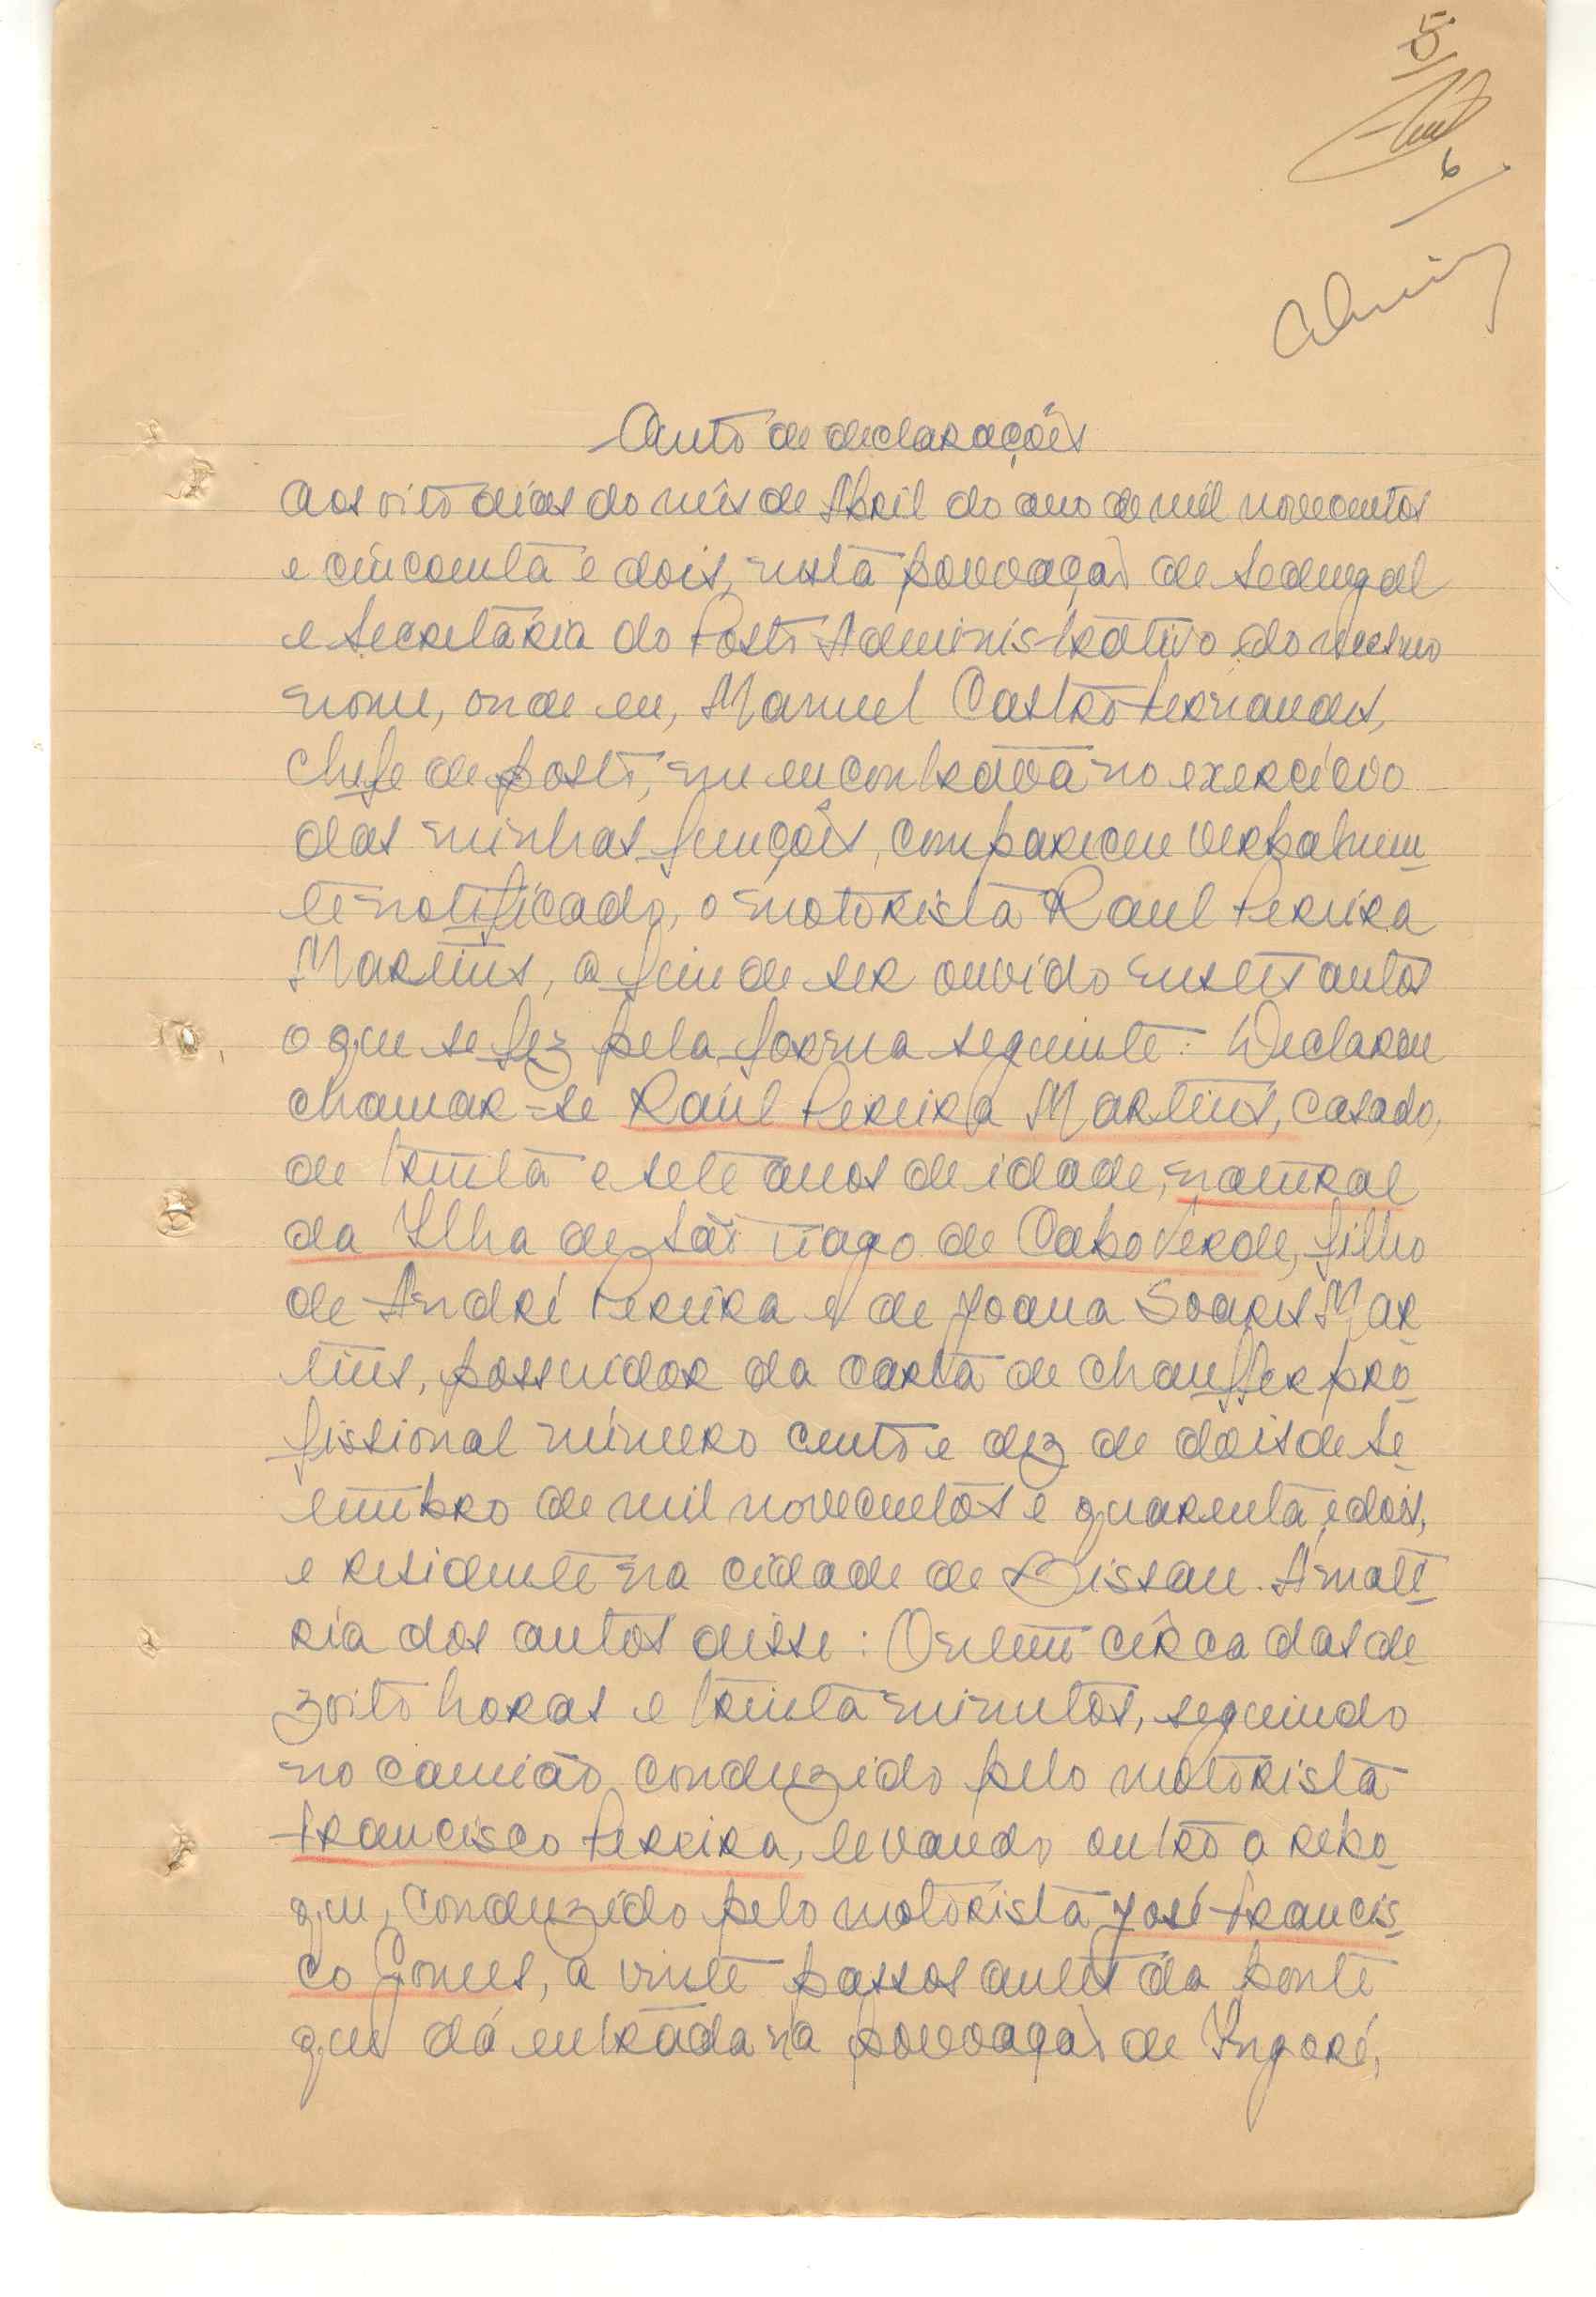 5
6
Auto de declarações
Aos oito dias do mês de Abril do ano de mil novecentos
e cincoenta e dois, nesta povoação de Sedengal
e Secretaria do Posto Administrativo do mesmo
nome, onde eu, Manuel Castro Fernandes,
chefe de posto, me encontrava no exercício
das minhas funções, compareceu verbalmen_
te notificado, o motorista Raul Pereira
Martins, a fim de ser ouvido nestes autos
o que se fez pela forma seguinte: Declarou
chamar-se Raúl Pereira Martins, casado,
de trinta e sete anos de idade, natural
da Ilha de São Tiago de Cabo Verde, filho
de André Pereira e de Joana Soares Mar_
tins, possuidor da carta de chauffer pro_
fissional número cento e dez de dois de Se_
tembro de mil novecentos e quarenta e dois,
e residente na cidade de Bissau. Á maté_
ria dos autos disse: Ontem cêrca das de_
zoito horas e trinta minutos, seguindo
no camião conduzido pelo motorista
Francisco Pereira, levando outro a rebo_
que, conduzido pelo motorista José Francis_
co Gomes, a vinte passos antes da ponte
que dá entrada na povoação de Ingoré,